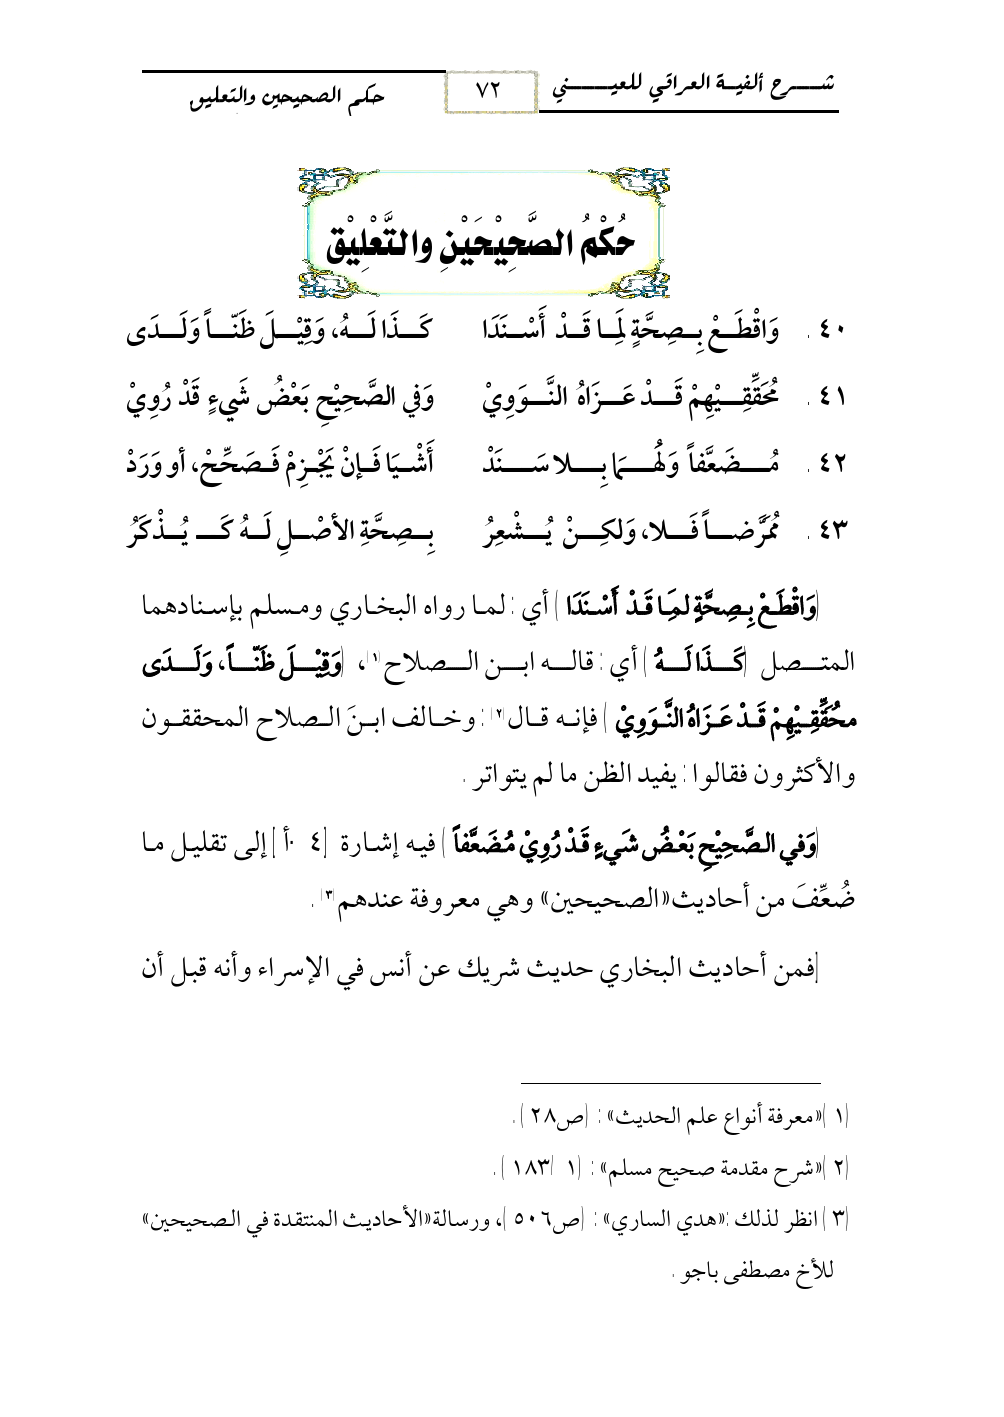 شرح ألفية العراقي للعيني
٧٢
حكم الصحيحين والتعليق
حُكْمُ الصَّحِيْحَيْنِ والتَّعْلِيْق
٤٠. وَاقْطَعْ بِصِحَّةٍ لِمَا قَدْ أَسْنَدَا كَذَا لَهُ، وَقِيْلَ ظَنّاً وَلَدَى
٤١. مُحَقِّقِيْهِمْ قَدْ عَزَاهُ النَّوَوِيْ وَفي الصَّحِيْحِ بَعْضُ شَيءٍ قَدْ رُوِيْ
٤٢. مُضَعَّفاً وَلَهُمَا بِلا سَنَدْ أَشْيَا فَإنْ يَجْزِمْ فَصَحِّحْ، أو وَرَدْ
٤٣. مُمَرَّضاً فَلا، وَلكِنْ يُشْعِرُ بِصِحَّةِ الأصْلِ لَهُ كَـ يُذْكَرُ
(وَاقْطَعْ بِصِحَّةٍ لمِاَ قَدْ أَسْنَدَا) أي: لما رواه البخاري ومسلم بإسنادهما
المتصل (كَذَا لَهُ) أي: قاله ابن الصلاح(١)، (وَقِيْلَ ظَنّاً، وَلَدَى
محُقِّقِيْهِمْ قَدْ عَزَاهُ النَّوَوِيْ) فإنه قال(٢): وخالف ابنَ الصلاح المحققون
والأكثرون فقالوا: يفيد الظن ما لم يتواتر.
(وَفي الصَّحِيْحِ بَعْضُ شَيءٍ قَدْ رُوِيْ مُضَعَّفاً) فيه إشارة [٤٠أ] إلى تقليل ما
ضُعِّفَ من أحاديث «الصحيحين» وهي معروفة عندهم(٣).
[فمن أحاديث البخاري حديث شريك عن أنس في الإسراء وأنه قبل أن
(١) «معرفة أنواع علم الحديث»: (ص٢٨).
(٢) «شرح مقدمة صحيح مسلم»: (١/١٨٣).
(٣) انظر لذلك: «هدي الساري»: (ص٥٠٦)، ورسالة «الأحاديث المنتقدة في الصحيحين»
للأخ مصطفى باجو.